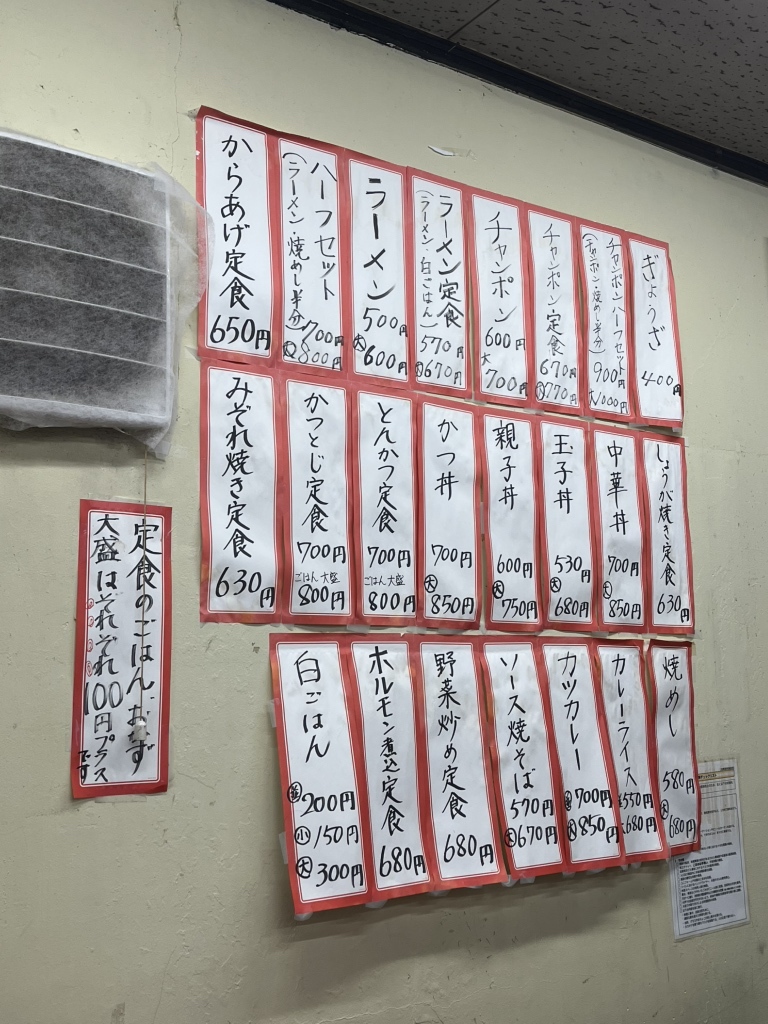 ぎょうざ
400円
チャンポンハーフセット
(チャンポン・焼めし半分)
900円
大1000円
チャンポン定食
670円
大770円
チャンポン
600円
大700円
ラーメン定食
(ラーメン・白ごはん)
570円
大670円
ラーメン
500円
大600円
ハーフセット
(ラーメン・焼めし半分)
700円
大800円
からあげ定食
650円
しょうが焼き定食
630円
中華丼
700円
大850円
玉子丼
530円
大680円
親子丼
600円
大750円
かつ丼
700円
大850円
とんかつ定食
700円
ごはん大盛
800円
かつとじ定食
700円
ごはん大盛
800円
みぞれ焼き定食
630円
焼めし
580円
大680円
カレーライス
550円
680円
カツカレー
700円
大850円
ソース焼そば
570円
大670円
野菜炒め定食
680円
ホルモン煮込定食
680円
白ごはん
並200円
小150円
大300円
定食のごはん、おかず
大盛はそれぞれ100円プラス
です